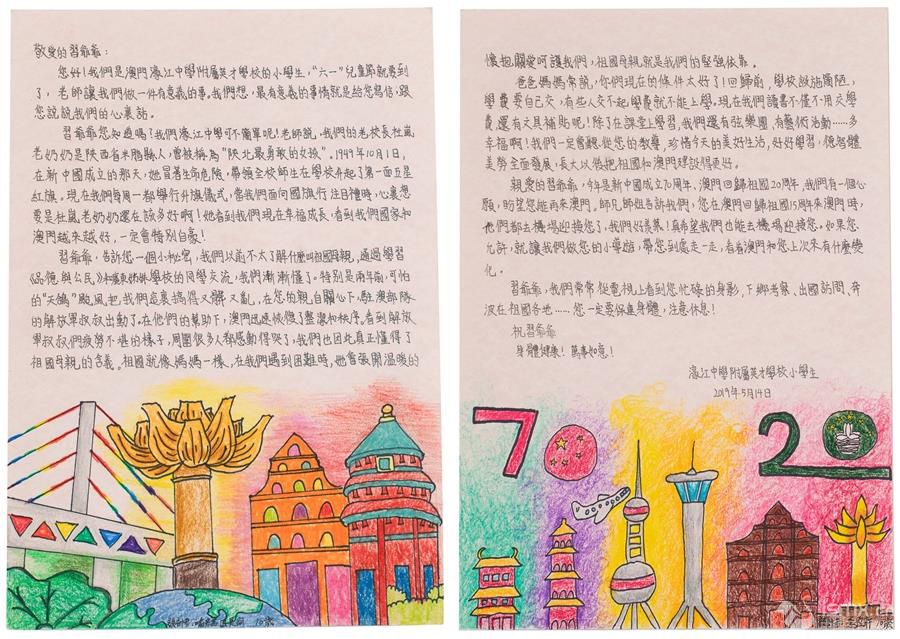 敬愛的習爺爺：
您好！我們是澳門濠江中學附屬英才學校的小學生，“六一”兒童節就要到
了，老師讓我們做一件有意義的事。我們想，最有意義的事情就是給您寫信，跟
您說說我們的心裏話。
習爺爺您知道嗎！我們濠江中學可不簡單呢！老師說，我們的老校長杜嵐
老奶奶是陝西省米脂縣人，曾被稱為“陝北最勇敢的女孩”。1949年10月1日，
在新中國成立的那天，她冒著生命危險，帶領全校師生在學校升起了第一面五星
紅旗。現在我們每周一都舉行升旗儀式，當我們面向國旗行注目禮時，心裏想
要是杜嵐老奶奶還在該多好啊！她看到我們現在幸福成長，看到我們國家和
澳門越來越好，一定會特別自豪！
習爺爺，告訴您一個小秘密，我們以前不太了解什麼叫祖國母親，通過學習
《品德與公民》和學校的同學交流，我們漸漸懂了。特別是兩年前，可怕
的“天鴿”颱風把我們這裏搞得又髒又亂，在您的親自關心下，駐澳部隊
的解放軍叔叔出動了。在他們的幫助下，澳門迅速恢復了整潔和秩序。看到解放
軍叔叔們疲勞不堪的樣子，周圍很多人都感動得哭了，我們也因此真正懂得了
祖國母親的含義。祖國就像媽媽一樣，在我們遇到困難時，她會張開溫暖的
10歲
懷抱關愛呵護我們，祖國母親就是我們的堅強依靠。
爸爸媽媽常說，你們現在的條件太好了！回歸前，學校設施簡陋，
學費要自己交，有些人交不起學費就不能上學。現在我們讀書不僅不用交學
費，還有文具補貼呢！除了在課堂上學習，我們還有弦樂團，有藝術活動……多
幸福啊！我們一定會聽從您的教導，珍惜今天的美好生活，好好學習，德智體
美勞全面發展，長大以後把祖國和澳門建設得更好。
親愛的習爺爺，今年是新中國成立70周年、澳門回歸祖國20周年，我們有一個心
願，盼望您能再來澳門。師兄師姐告訴我們，您在澳門回歸祖國15周年來澳門時，
他們都去機場迎接您了，我們好羨慕！真希望我們也能去機場迎接您。如果您
允許，就讓我們做您的小導遊，帶您到處走一走，看看澳門和您上次來有什麼變
化。
習爺爺，我們常常從電視上看到您忙碌的身影，下鄉考察、出國訪問、奔
波在祖國各地……您一定要保重身體，注意休息！
祝習爺爺
身體健康！萬事如意！
濠江中學附屬英才學校小學生
2019年5月14日
70
20